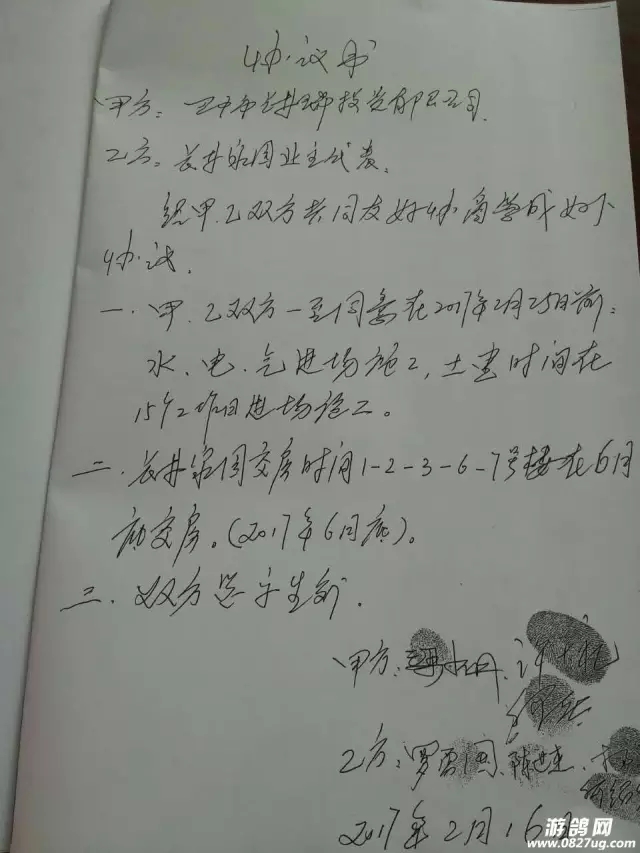 协议书
甲方：井 投资有限公司
乙方：长井 园业主代表。
经甲、乙双方共同友好协商 成如下
协议.
一.甲.乙双方一至同意在2017年2月25日前：
水、电、气进场施工，土建时间在
15个工作日进场施工。
二.长井 园交房时间1-2-3-6-7号楼在6月
前交房。(2017年6月底)。
三.双方签字生效.
甲方：
乙方：罗 国
2017年2月16日
游鸽网
www.0827ug.com